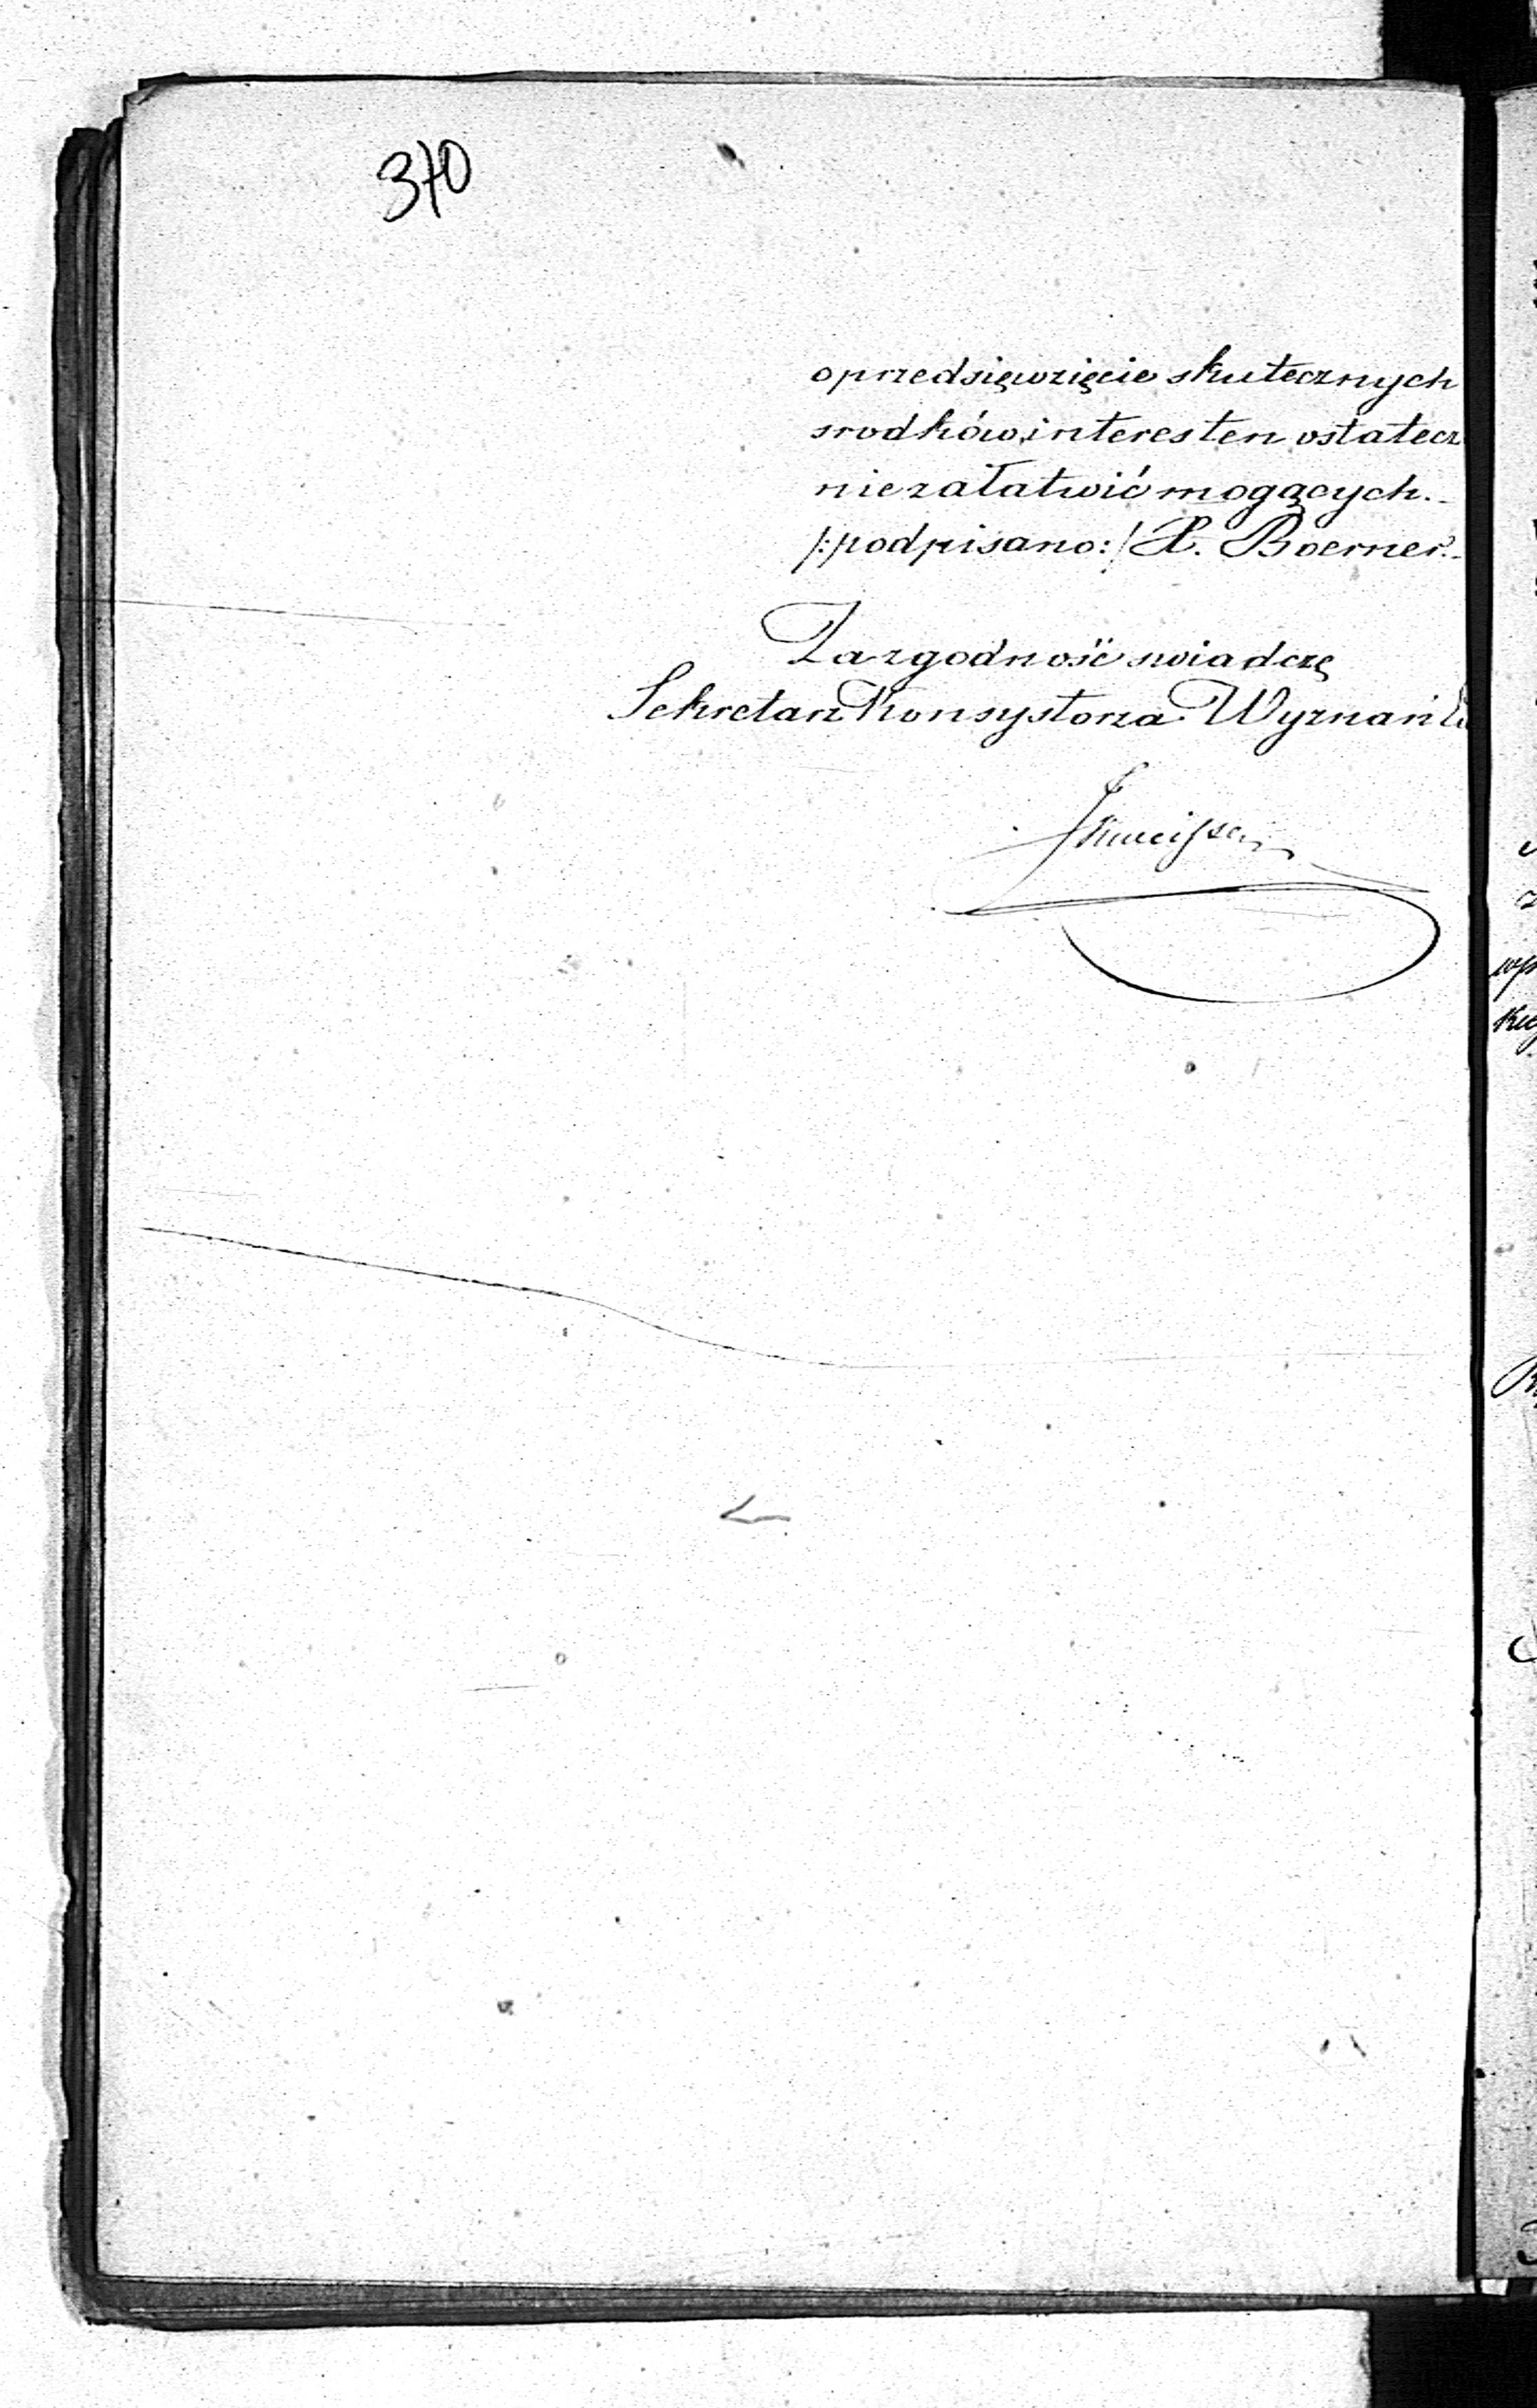 370
o przedsięwzięcie skutecznych
srodków, interes ten ostatecz
nie załatwić mogących.-
/:podpisano:/ X. Boerner.-
Za zgodność swiadczę
Sekretarz Konsystorza Wyznań